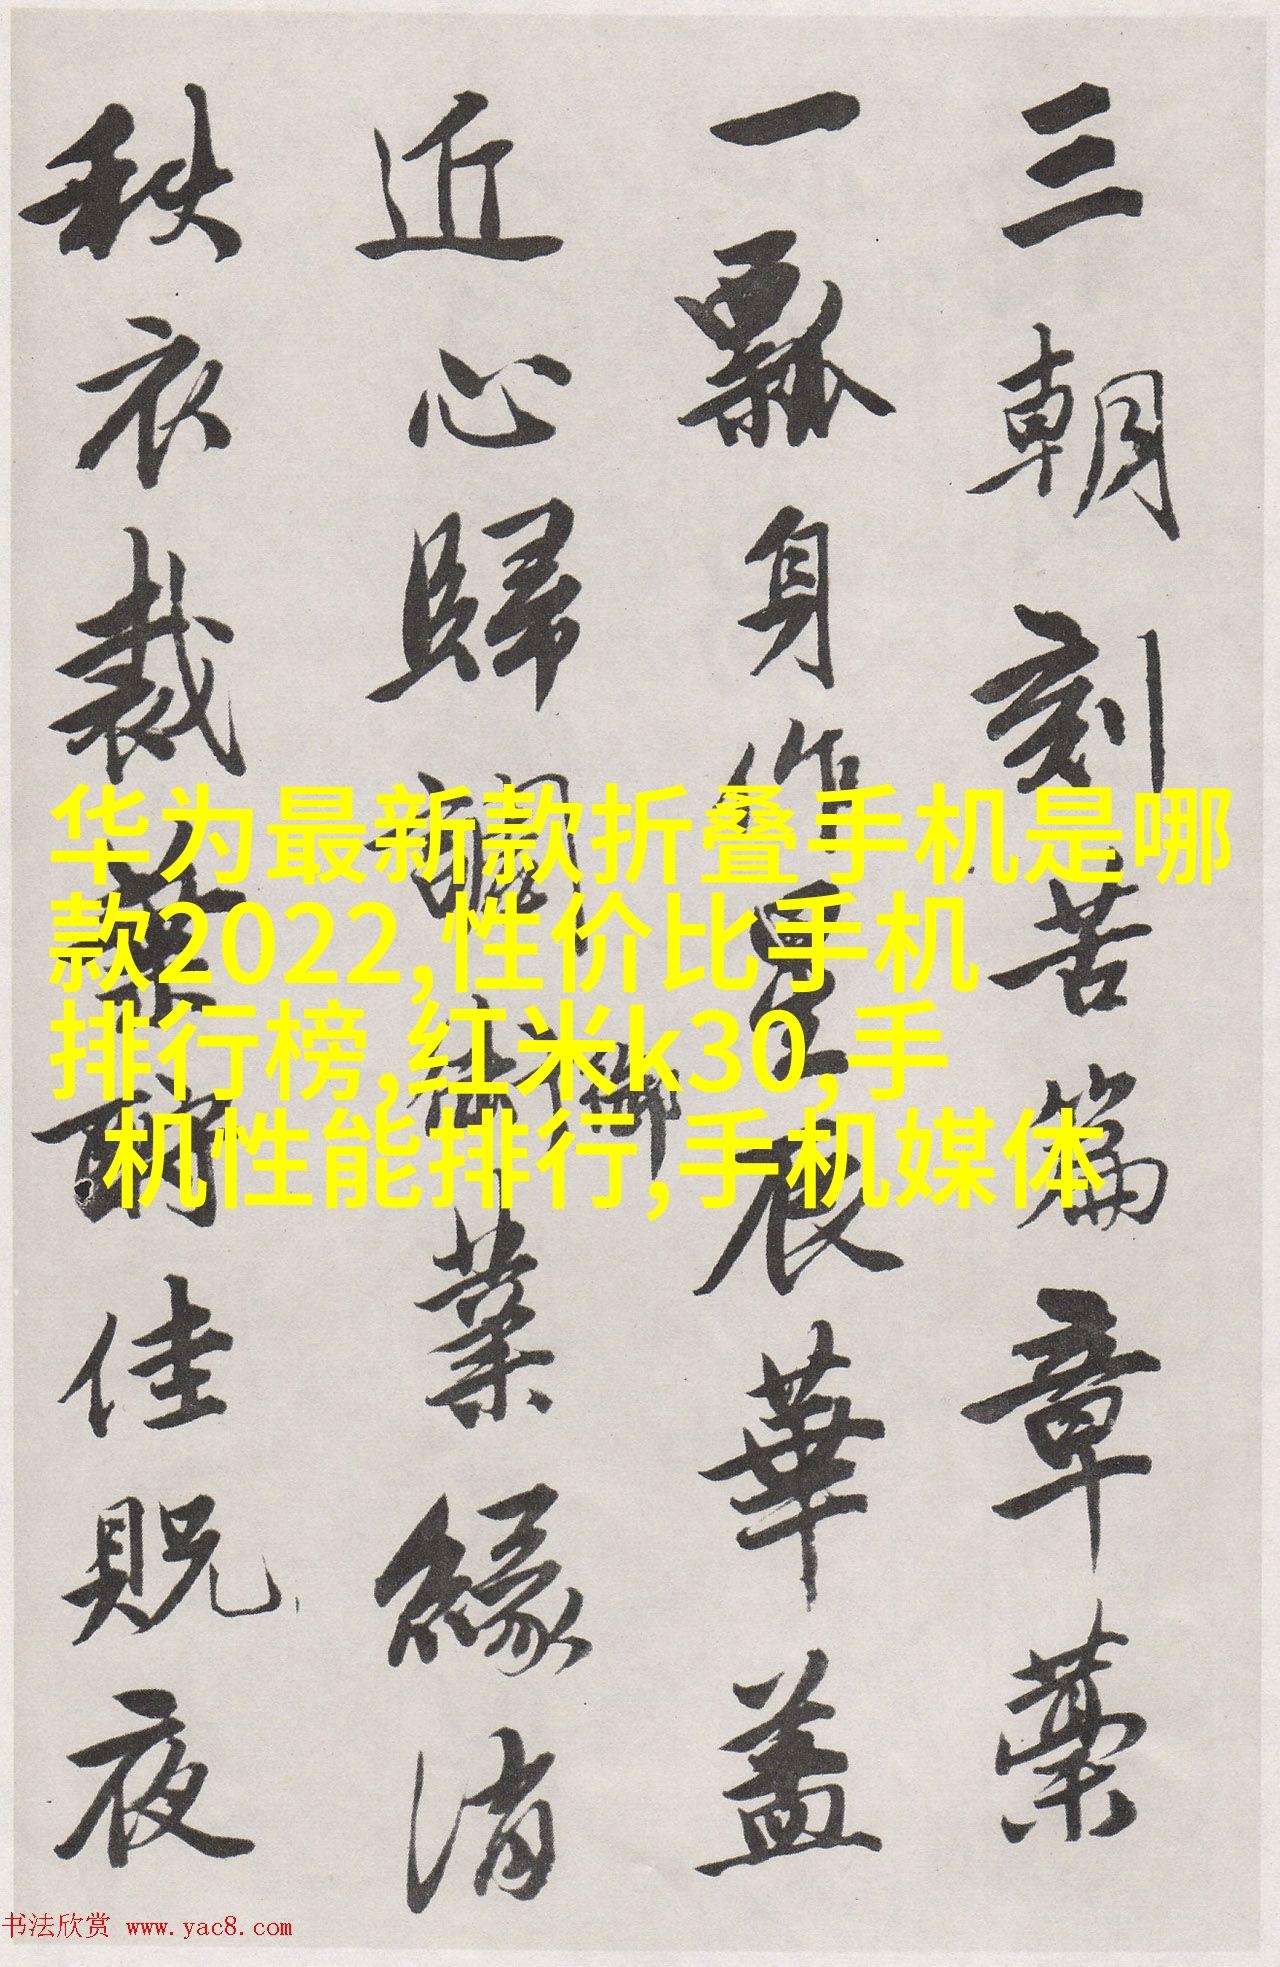 三朝刻苦篇章藁
一瓢身作星辰華蓋
近心歸 業緣消
秩衣裁 酧佳貺夜
华为最新款折叠手机是哪
款2022,性价比手机
排行榜,红米k30,手
机性能排行,手机媒体
书法欣赏 www.yac8.com